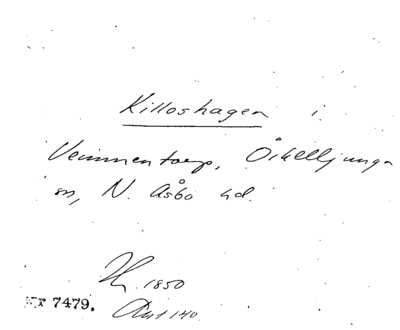 Killoshagen i
Vemmentorp, Örkelljunga
sn, N. Åsbo hd.
1850
Nr 7479.
Ant 140